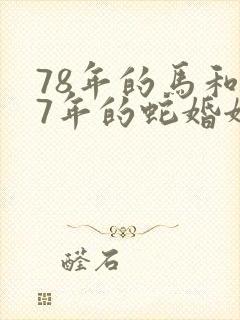 78年的馬和
7年的蛇婚姻
醛石